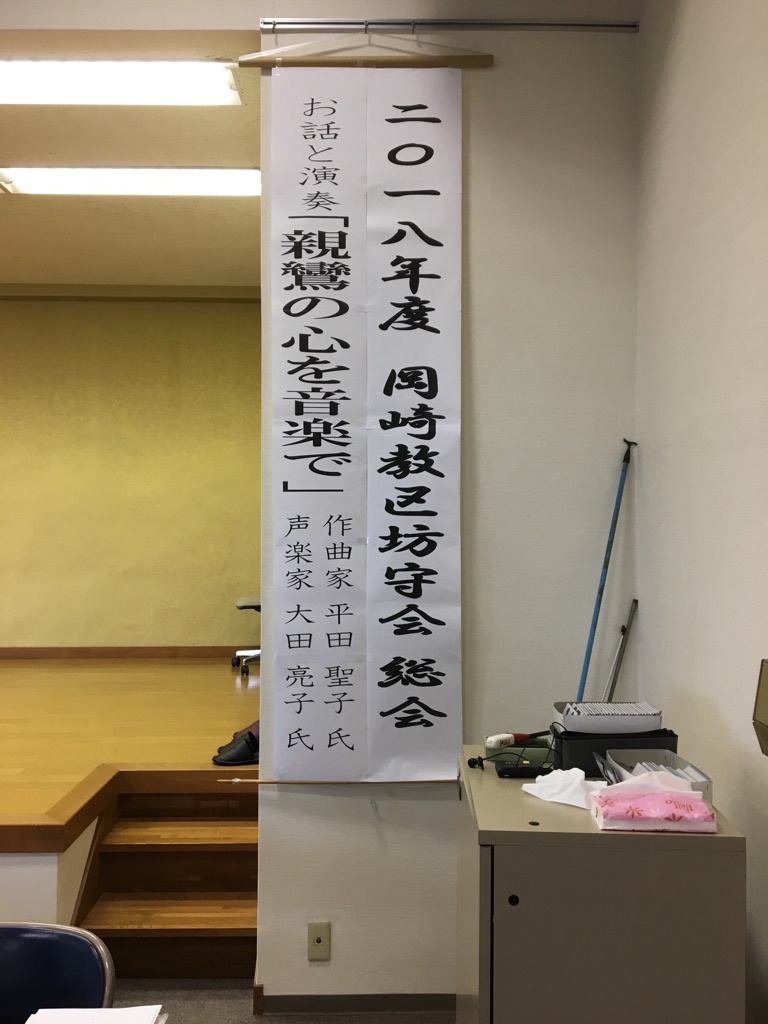 二〇一八年度 岡崎教区坊守会 総会
お話と演奏「親鸞の心を音楽で」
作曲家 平田 聖子 氏
声楽家 大田 亮子 氏